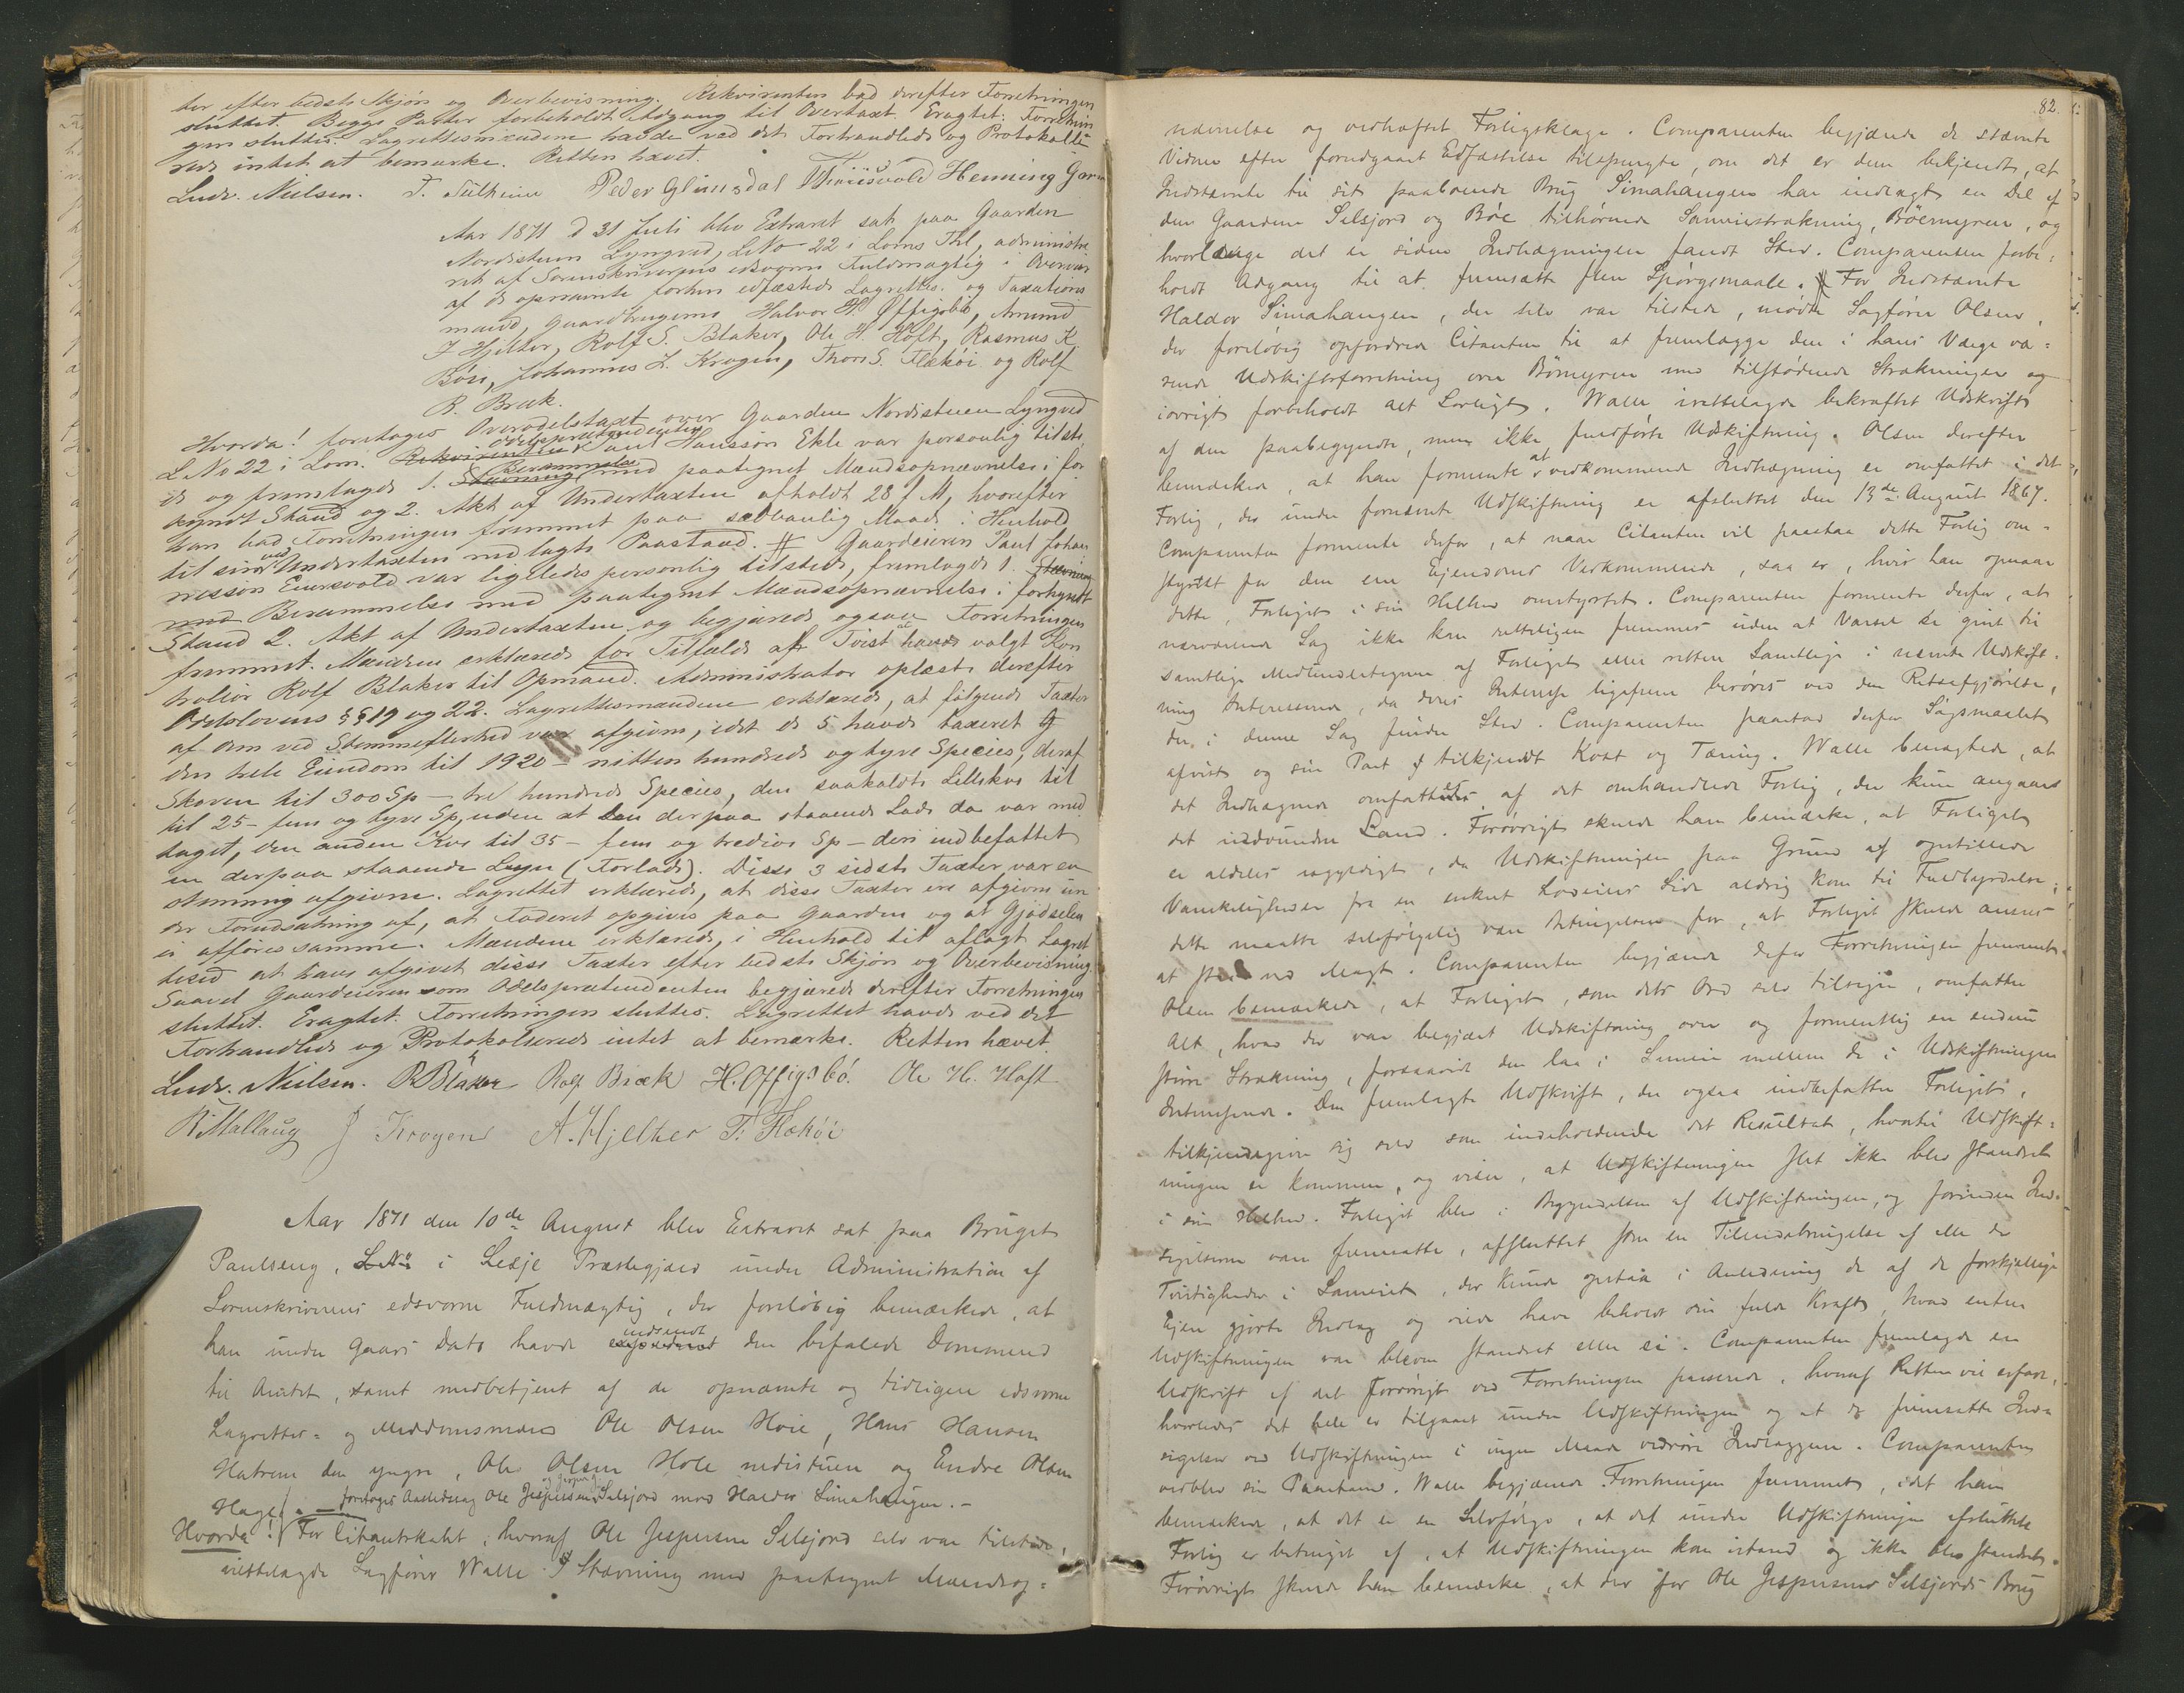 ter efter bedste Skjøn og Overbevisning. Rekvirenten bad derefter Forretningen
sluttet. Begge Parter forbeholdt Adgang til Overtaxt. Eragtet: Forretnin
gen sluttes. Lagrettesmændene havde ved det Forhandlede og Protokolle
rede intet at bemærke. Retten hævet.
Ludv. Nielsen. T. Sulheim Peder Glimsdal Henning Gar
Aar 1871 d 31 Juli blev Extraret sat paa Gaarden
Nordistuen Lyngved, LNo 22 i Loms Thl, administre
ret af Sorenskriverens edsvorne Fuldmægtig i Overvær
af de opnævnte forhen edfæstede Lagrettes- og Taxations
mænd, Gaardbrugerne Halvor H. Øffigsbø, Amund
J Hjelter, Rolf S. Blaker, Ole H. Hoft, Rasmus K
Bøie, Johannes L. Krogen, Thor S. Flækøi og Rolf
R. Bræk.
Hvorda! foretoges Overodelstaxt over Gaarden Nordistuen Lyngved
LNo 22 i Lom. Rekvirenten Odelsprætendenten Paul Hanssøn Ekle var personlig tilste
de og fremlagde 1. Stævning Berammelse med paategnet Mændsopnævnelse i for
kyndt Stand og 2. Akt af Undertaxten afholdt 28 f M, hvorefter
han bad Forretningen fremmet paa sædvanlig Maade i Henhold
til sin ved Undertaxten nedlagte Paastand. # Gaardeieren Paul Johan
nessøn Einersvold var ligeledes personlig tilstede, fremlagde 1. Stævning
med Berammelse med paategnet Mændsopnævnelse i forkyndt
Stand 2. Akt af Undertaxten og begjærede ogsaa Forretningen
fremmet. Mændene erklærede for Tilfælde af Tvist at have valgt Kon
trollør Rolf Blaker til Opmand. Administrator oplæste derefter
Odelslovens §§ 19 og 22. Lagrettesmændene erklærede, at følgende Taxter
af dem ved Stemmeflerhed var afgivne, idet de 5 havde taxeret G
den hele Eiendom til 1920 – nitten hundrede og tyve Species, deraf
Skoven til 300 Sp – tre hundrede Species, den saakaldte Lillekve til
til 25 – fem og tyve Sp, uden at den derpaa staaende Lade da var med
taget, den anden Kve til 35 – fem og tredive Sp – deri indbefattet
en derpaa staaende Løe (Forlade). Disse 3 sidste Taxter var en
stemmig afgivne. Lagrettet erklærede, at disse Taxter ere afgivne un
der Forudsætning af, at Foderet opgives paa Gaarden og at Gjødselen
ei afføres samme. Mændene erklærede, i Henhold til aflagt Lagret
tesed at have afgivet disse Taxter efter bedste Skjøn og Overbevisning
Saavel Gaardeieren som Odelsprætendenten begjærede derefter Forretningen
sluttet. Eragtet: Forretningen sluttes. Lagrettet havde ved det
Forhandlede og Protokollerede intet at bemærke. Retten hævet.
Ludv. Nielsen. R Blaker Rolf Bræk H. Øffigsbø. Ole H. Hoft
J Krogen A. Hjelter T. Flækøi
Aar 1871 den 10de August blev Extraret sat paa Bruget
Paulseng, LNo i Lesje Præstegjæld under Administration af
Sorenskriverens edsvorne Fuldmægtig, der foreløbig bemærkede, at
han under Gaars Dato havde expederet indsendt den befalede Dommered
til Amtet, samt medbetjent af de opnævnte og tidligere edsvorne
Lagrettes- og Meddomsmænd Ole Olsen Hoie, Hans Hansen
Hatrem den yngre, Ole Olsen Hole nedistuen og Endre Olsen
Hage.
foretoges Aastedssag Ole Jespersen og Jesper J. Selsjord mod Haldor Simahaugen. –
Hvorda! For Citantskabet, hvoraf Ole Jespersen Selsjord selv var tilstede,
irettelagde Sagfører Walle Stævning med paategnet Mændsop-
82.
nævnelse og vedhæftet Forligsklage. Comparenten begjærede de stævnte
Vidner efter forudgaaet Edfæstelse tilspurgte, om det er dem bekjendt, at
Indstævnte til sit paaboende Brug Simahaugen har indlagt en Del af
den Gaardene Selsjord og Bøe tilhørende Sameiestrækning, Bøemyren, og
hvorlænge det er siden Indhægningen fandt Sted. Comparenten forbe-
holdt Adgang til at fremsætte flere Spørgsmaale. # For Indstævnte
Haldor Simahaugen, der selv var tilstede, mødte Sagfører Olsen,
der foreløbig opfordrede Citanten til at fremlægge den i hans Værge væ-
rende Udskiftsforretning over Bømyren med tilstødende Strækninger og
iøvrigt forbeholdt alt Lovligt. Walle irettelagde bekræftet Udskrift
af den paabegyndte, men ikke fuldførte Udskiftning. Olsen derefter
bemærkede, at han formente at vedkommende Indhægning er omfattet i det
Forlig, der under fornævnte Udskiftning er afsluttet den 13de August 1867.
Comparenten formente derfor, at naar Citanten vil paastaa dette Forlig om-
styrtet for den ene Ejendoms Vedkommende, saa er, hvis han opnaar
dette, Forliget i sin Helhed omstyrtet. Comparenten formente derfor, at
nærværende Sag ikke kan rettelig fremmes uden at Varsel er givet til
samtlige Medunderskrivere af Forliget eller rettere Samtlige i nævnte Udskift-
ning Interesserede, da deres Interesse ligefrem berøres ved den Retsafgjørelse,
der i denne Sag finder Sted. Comparenten paastod derfor Søgsmaalet
afvist og sin Part tilkjendt Kost og Tæring. Walle benægtede, at
det Indhægnede omfattedes af det omhandlede Forlig, der kun angaaer
det indvundne Land. Forøvrigt skulde han bemærke, at Forliget
er aldeles ugyldigt, da Udskiftningen paa Grund af opstillede
Vanskeligheder fra en enkelt Lodeiers Side aldrig kom til Fuldbyrdelse;
dette maatte selvfølgelig være Betingelsen for, at Forliget skulde ansees
at staa ved Magt. Comparenten begjærede derfor Forretningen fremmet.
Olsen bemærkede, at Forliget, som dets Ord selv tilsiger, omfatter
Alt, hvad der var begjært Udskiftning over og formentlig en endnu
større Strækning, forsaavidt den laa i Sameie mellem de i Udskiftningen
Interesserede. Den fremlagte Udskrift, der ogsaa indbefatter Forliget,
tilkjendegiver sig selv som indeholdende det Resultat, hvortil Udskift-
ningen er kommen, og viser, at Udskiftningen slet ikke blev standset
i sin Helhed. Forliget blev i Begyndelsen af Udskiftningen, og forinden Ind-
sigelserne vare fremsatte, afsluttet som en Tilendebringelse af alle de
Tvistigheder i Sameiet, der kunde opstaa i Anledning de af de forskjellige
Ejere gjorte Indlæg og vilde have beholdt sin fulde Kraft, hvad enten
Udskiftningen var bleven standset eller ei. Comparenten fremlagde en
Udskrift af det forøvrigt ved Forretningen passerede, hvoraf Retten vil erfare,
hvorledes det hele er tilgaaet under Udskiftningen og at de fremsatte Ind-
sigelser ved Udskiftningen i ingen Maade vedrøre Indlæggene. Comparenten
vedblev sin Paastand. Walle begjærede Forretningen fremmet, idet han
bemærkede, at det er en Selvfølge, at det under Udskiftningen afsluttede
Forlig er betinget af, at Udskiftningen kom istand og ikke blev standset.
Forøvrigt skulde han bemærke, at der for Ole Jespersens Selsjords Brug